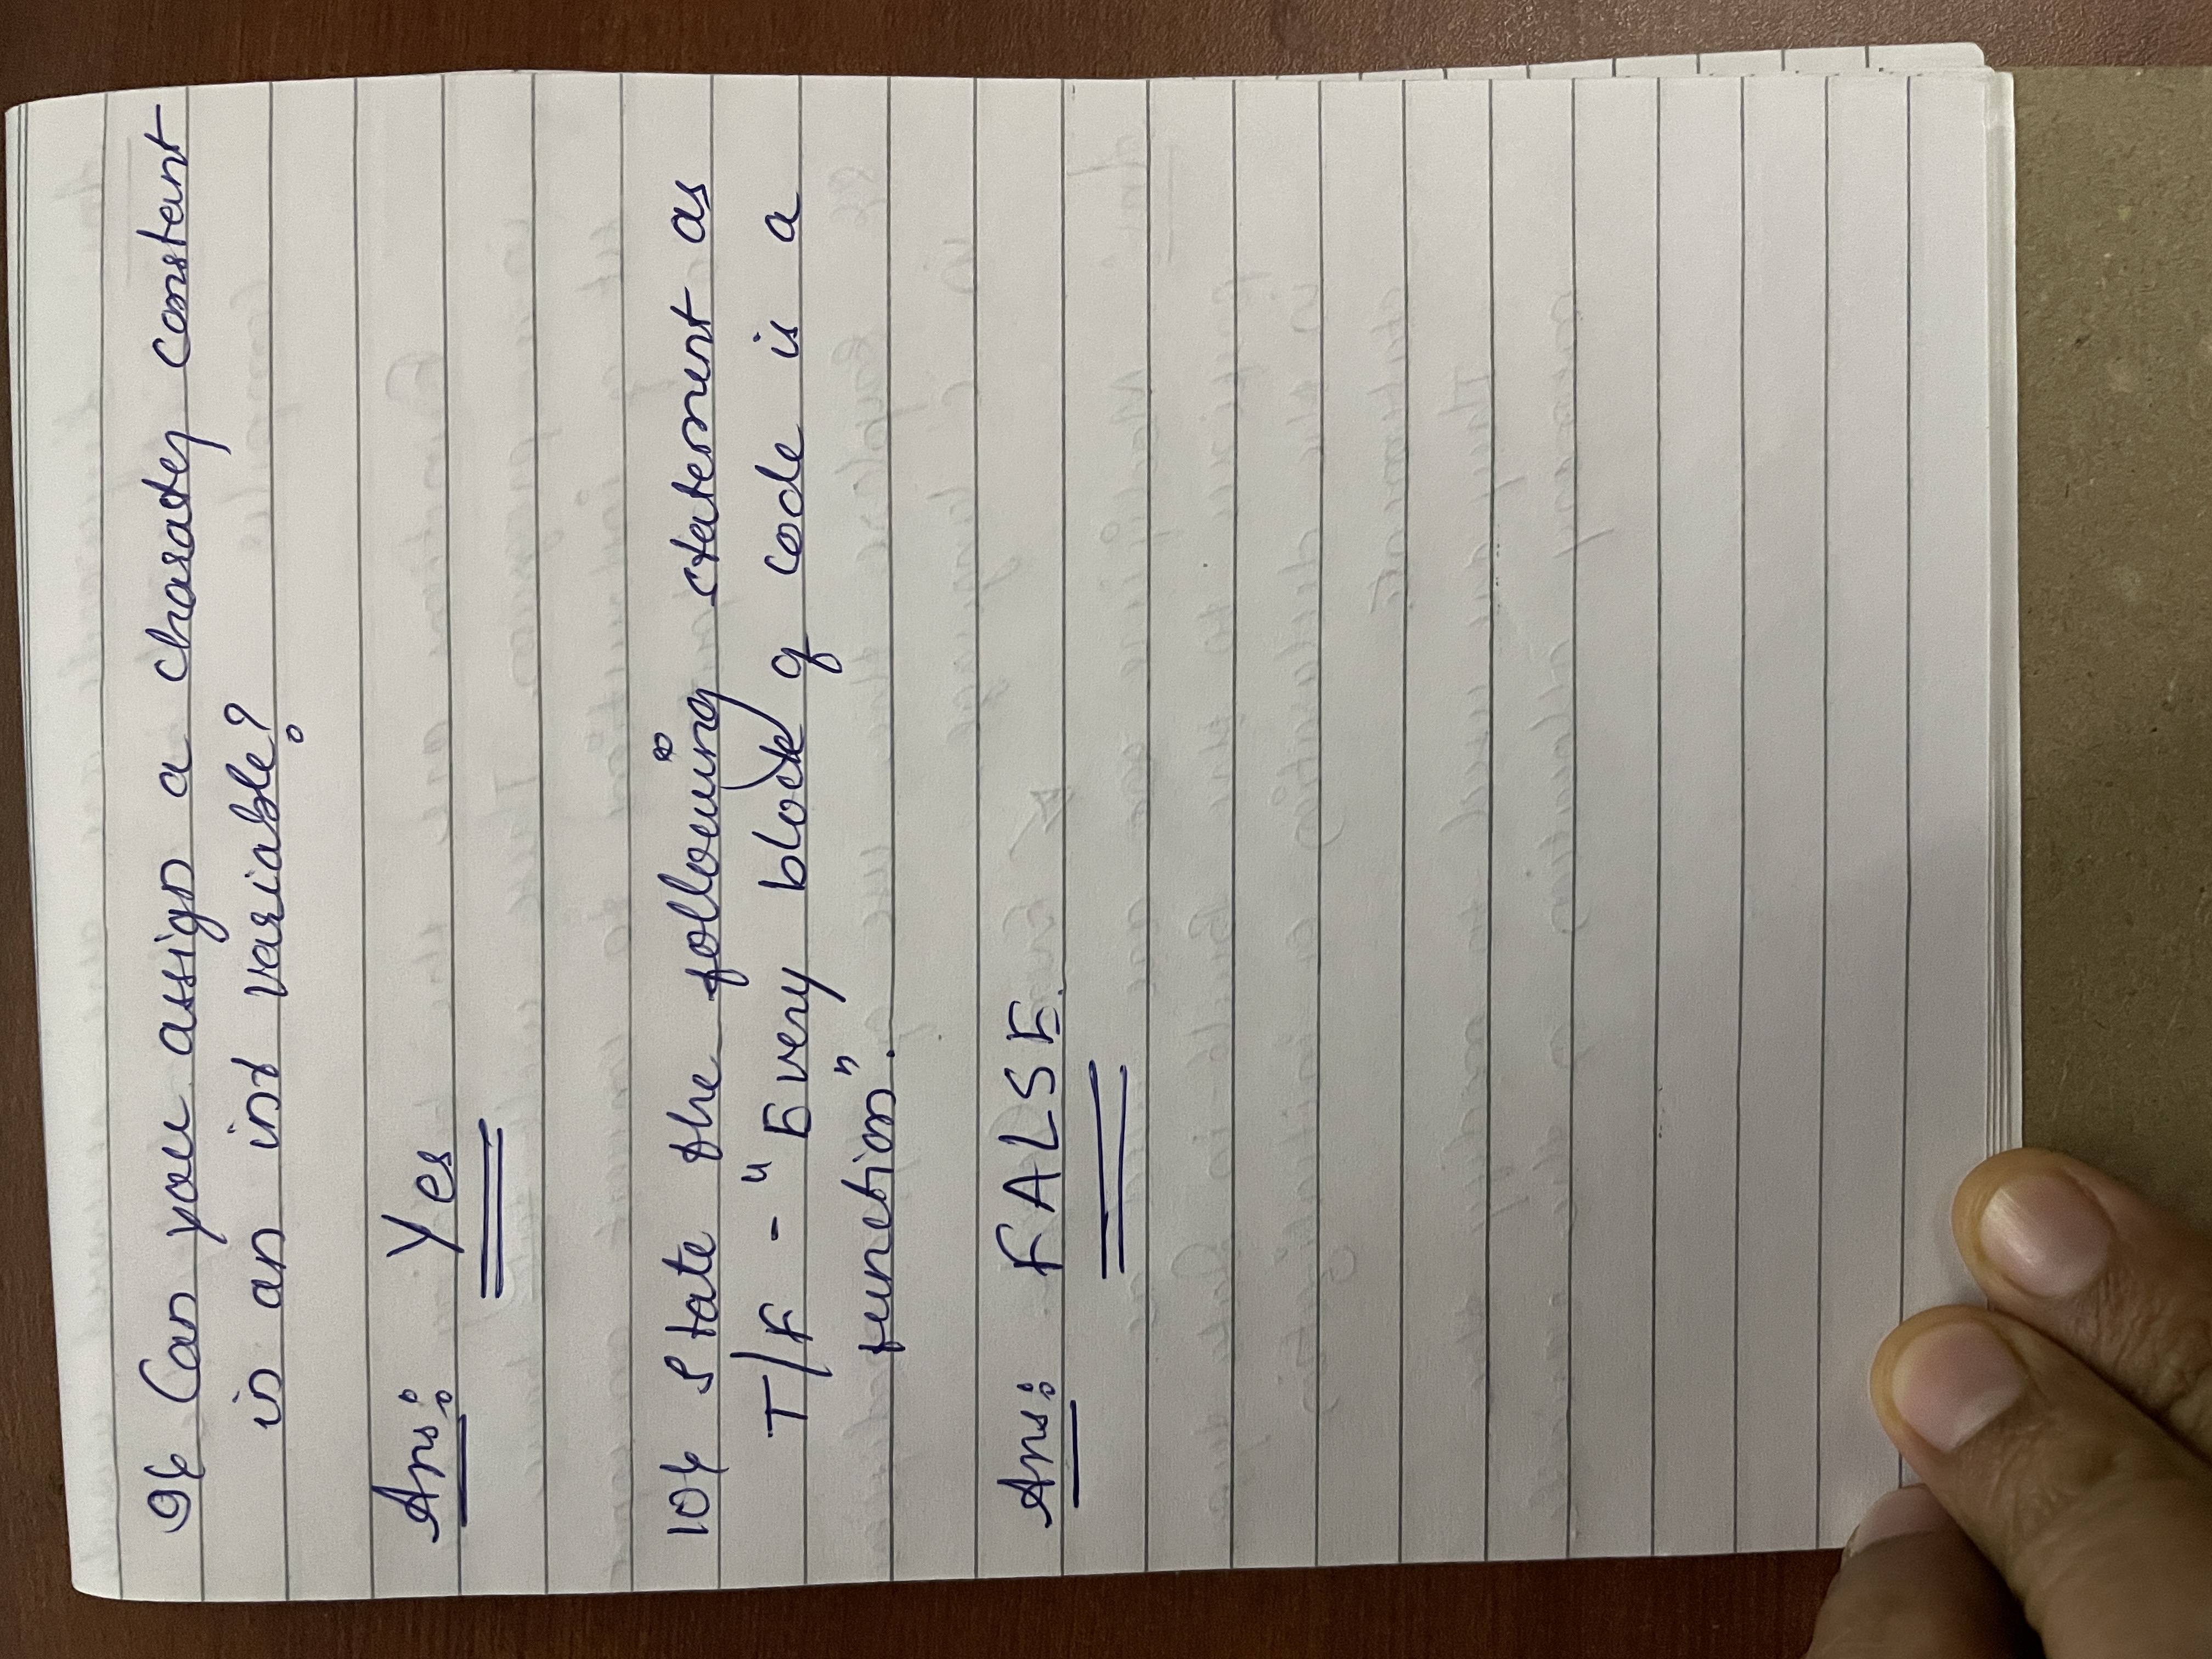 9) Can you assign a character constant
in an int variable?
Ans: Yes
10) State the following statement as
T/F - "Every block of code is a
function".
Ans: FALSE.